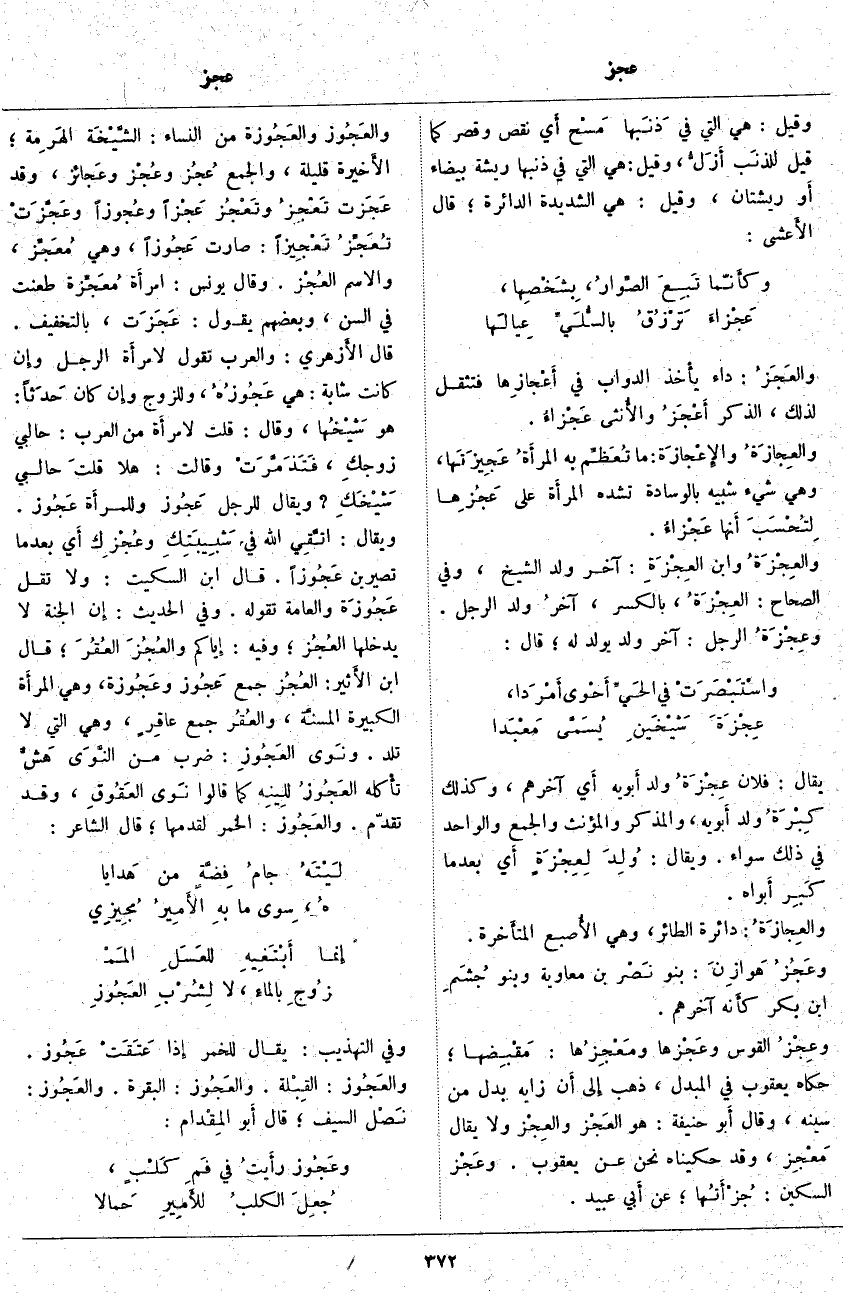 عجز
عجز
وقيل : هي التي في ذَنَبها مَسْح أي نقص وقصر كما
قيل للذئب أَزَلُّ، وقيل: هي التي في ذنبها ريشة بيضاء
أو ريشتان ، وقيل : هي الشديدة الدائرة ؛ قال
الأعشى :
وكأَنّما تَبِعَ الصِّوارُ، بِشَخْصِها،
عَجْزاءَ تَرْزُقُ بالسُّلَيِّ عِيالَها
والعَجَزُ : داء يأخذ الدواب في أَعْجازِها فتثقل
لذلك ، الذكر أَعْجَزُ والأُنثى عَجْزاءُ .
والعِجازَةُ والإِعْجازَة: ما تُعَظِّم به المرأَةُ عَجِيزَتَها،
وهي شيء شبيه بالوسادة تشده المرأة على عَجُزِها
لِتُحْسَبَ أَنها عَجْزاءُ .
والعِجْزَةُ وابن العِجْزَةِ : آخر ولد الشيخ ، وفي
الصحاح : العِجْزَةُ ، بالكسر ، آخرُ ولد الرجل .
وعِجْزَةُ الرجل : آخر ولد يولد له ؛ قال :
واسْتَبْصَرَتْ في الحَيِّ أَحْوى أَمْرَدا،
عِجْزَةَ شَيْخَينِ يُسَمَّى مَعْبَدا
يقال : فلان عِجْزَةُ ولد أَبويه أي آخرهم ، وكذلك
كِبْرَةُ ولد أَبويه، والمذكر والمؤنث والجمع والواحد
في ذلك سواء . ويقال : وُلِدَ لِعِجْزَةٍ أي بعدما
كَبِر أَبواه .
والعِجازَةُ : دائرة الطائر، وهي الأصبع المتأخرة .
وعَجُزُ هَوازِنَ : بنو نَصْر بن معاوية وبنو جُشَمِ
ابن بكر كأَنه آخرهم .
وعِجْزُ القوس وعَجْزها ومَعْجِزُها : مَقْبِضها ؛
حكاه يعقوب في المبدل ، ذهب إلى أن زايه بدل من
سينه ، وقال أبو حنيفة : هو العَجْز والعِجْز ولا يقال
مَعْجِز ، وقد حكيناه نحن عن يعقوب . وعَجْز
السكين : جُزْأَتُها ؛ عن أبي عبيد .
والعَجُوز والعَجُوزة من النساء : الشَّيْخَة الهَرِمة ؛
الأخيرة قليلة ، والجمع عُجُز وعُجْز وعَجائز ، وقد
عَجَزَت تَعْجُزُ وتَعْجِزُ عَجْزاً وعُجوزاً وعَجَّزَتْ
تُعَجِّزُ تَعْجِيزاً : صارت عَجُوزاً ، وهي مُعَجِّز ،
والاسم العُجْز . وقال يونس : امرأة مُعَجِّزة طعنت
في السن ، وبعضهم يقول : عَجَزَت ، بالتخفيف .
قال الأزهري : والعرب تقول لامرأة الرجل وإن
كانت شابة : هي عَجُوزُهُ ، وللزوج وإن كان حَدَثاً :
هو شَيْخُها ، وقال : قلت لامرأة من العرب : حالبي
زوجكِ ، فَتَذَمَّرَتْ وقالت : هلا قلتَ حالبي
شَيْخَكِ ؟ ويقال للرجل عَجُوز وللمرأة عَجُوز .
ويقال : اتَّقِي الله في شَبِيبَتِكِ وعُجْزِك أي بعدما
تصيرين عَجُوزاً . قال ابن السكيت : ولا تقل
عَجُوزَة والعامة تقوله . وفي الحديث : إن الجنة لا
يدخلها العُجُز ؛ وفيه : إياكم والعُجُزَ العُقُرَ ؛ قال
ابن الأثير: العُجُز جمع عَجُوز وعَجُوزة، وهي المرأة
الكبيرة المسنَّة ، والعُقُر جمع عاقِرٍ ، وهي التي لا
تلد . ونَوى العَجُوزِ : ضرب من النَّوَى هَشٌّ
تأكله العَجُوزُ للِينِه كما قالوا نَوى العَقُوقِ ، وقد
تقدّم . والعَجُوز : الخمر لقدمها ؛ قال الشاعر :
لَيْتَهُ جامُ فِضَّةٍ من هَدايا
هُ ، سِوى ما به الأَمِيرُ مُجِيزِي
إنما أَبْتَغِيهِ للعَسَلِ المَمْ
زُوجِ بالماء ، لا لِشُرْبِ العَجُوزِ
وفي التهذيب : يقال للخمر إذا عَتَقَتْ عَجُوز .
والعَجُوز : القِبْلة . والعَجُوز : البقرة . والعَجُوز :
نَصْل السيف ؛ قال أبو المِقْدام :
وعَجُوز رأَيتُ في فَمِ كَلْبٍ ،
جُعِلَ الكلبُ للأَمِيرِ حَمالا
٣٧٢